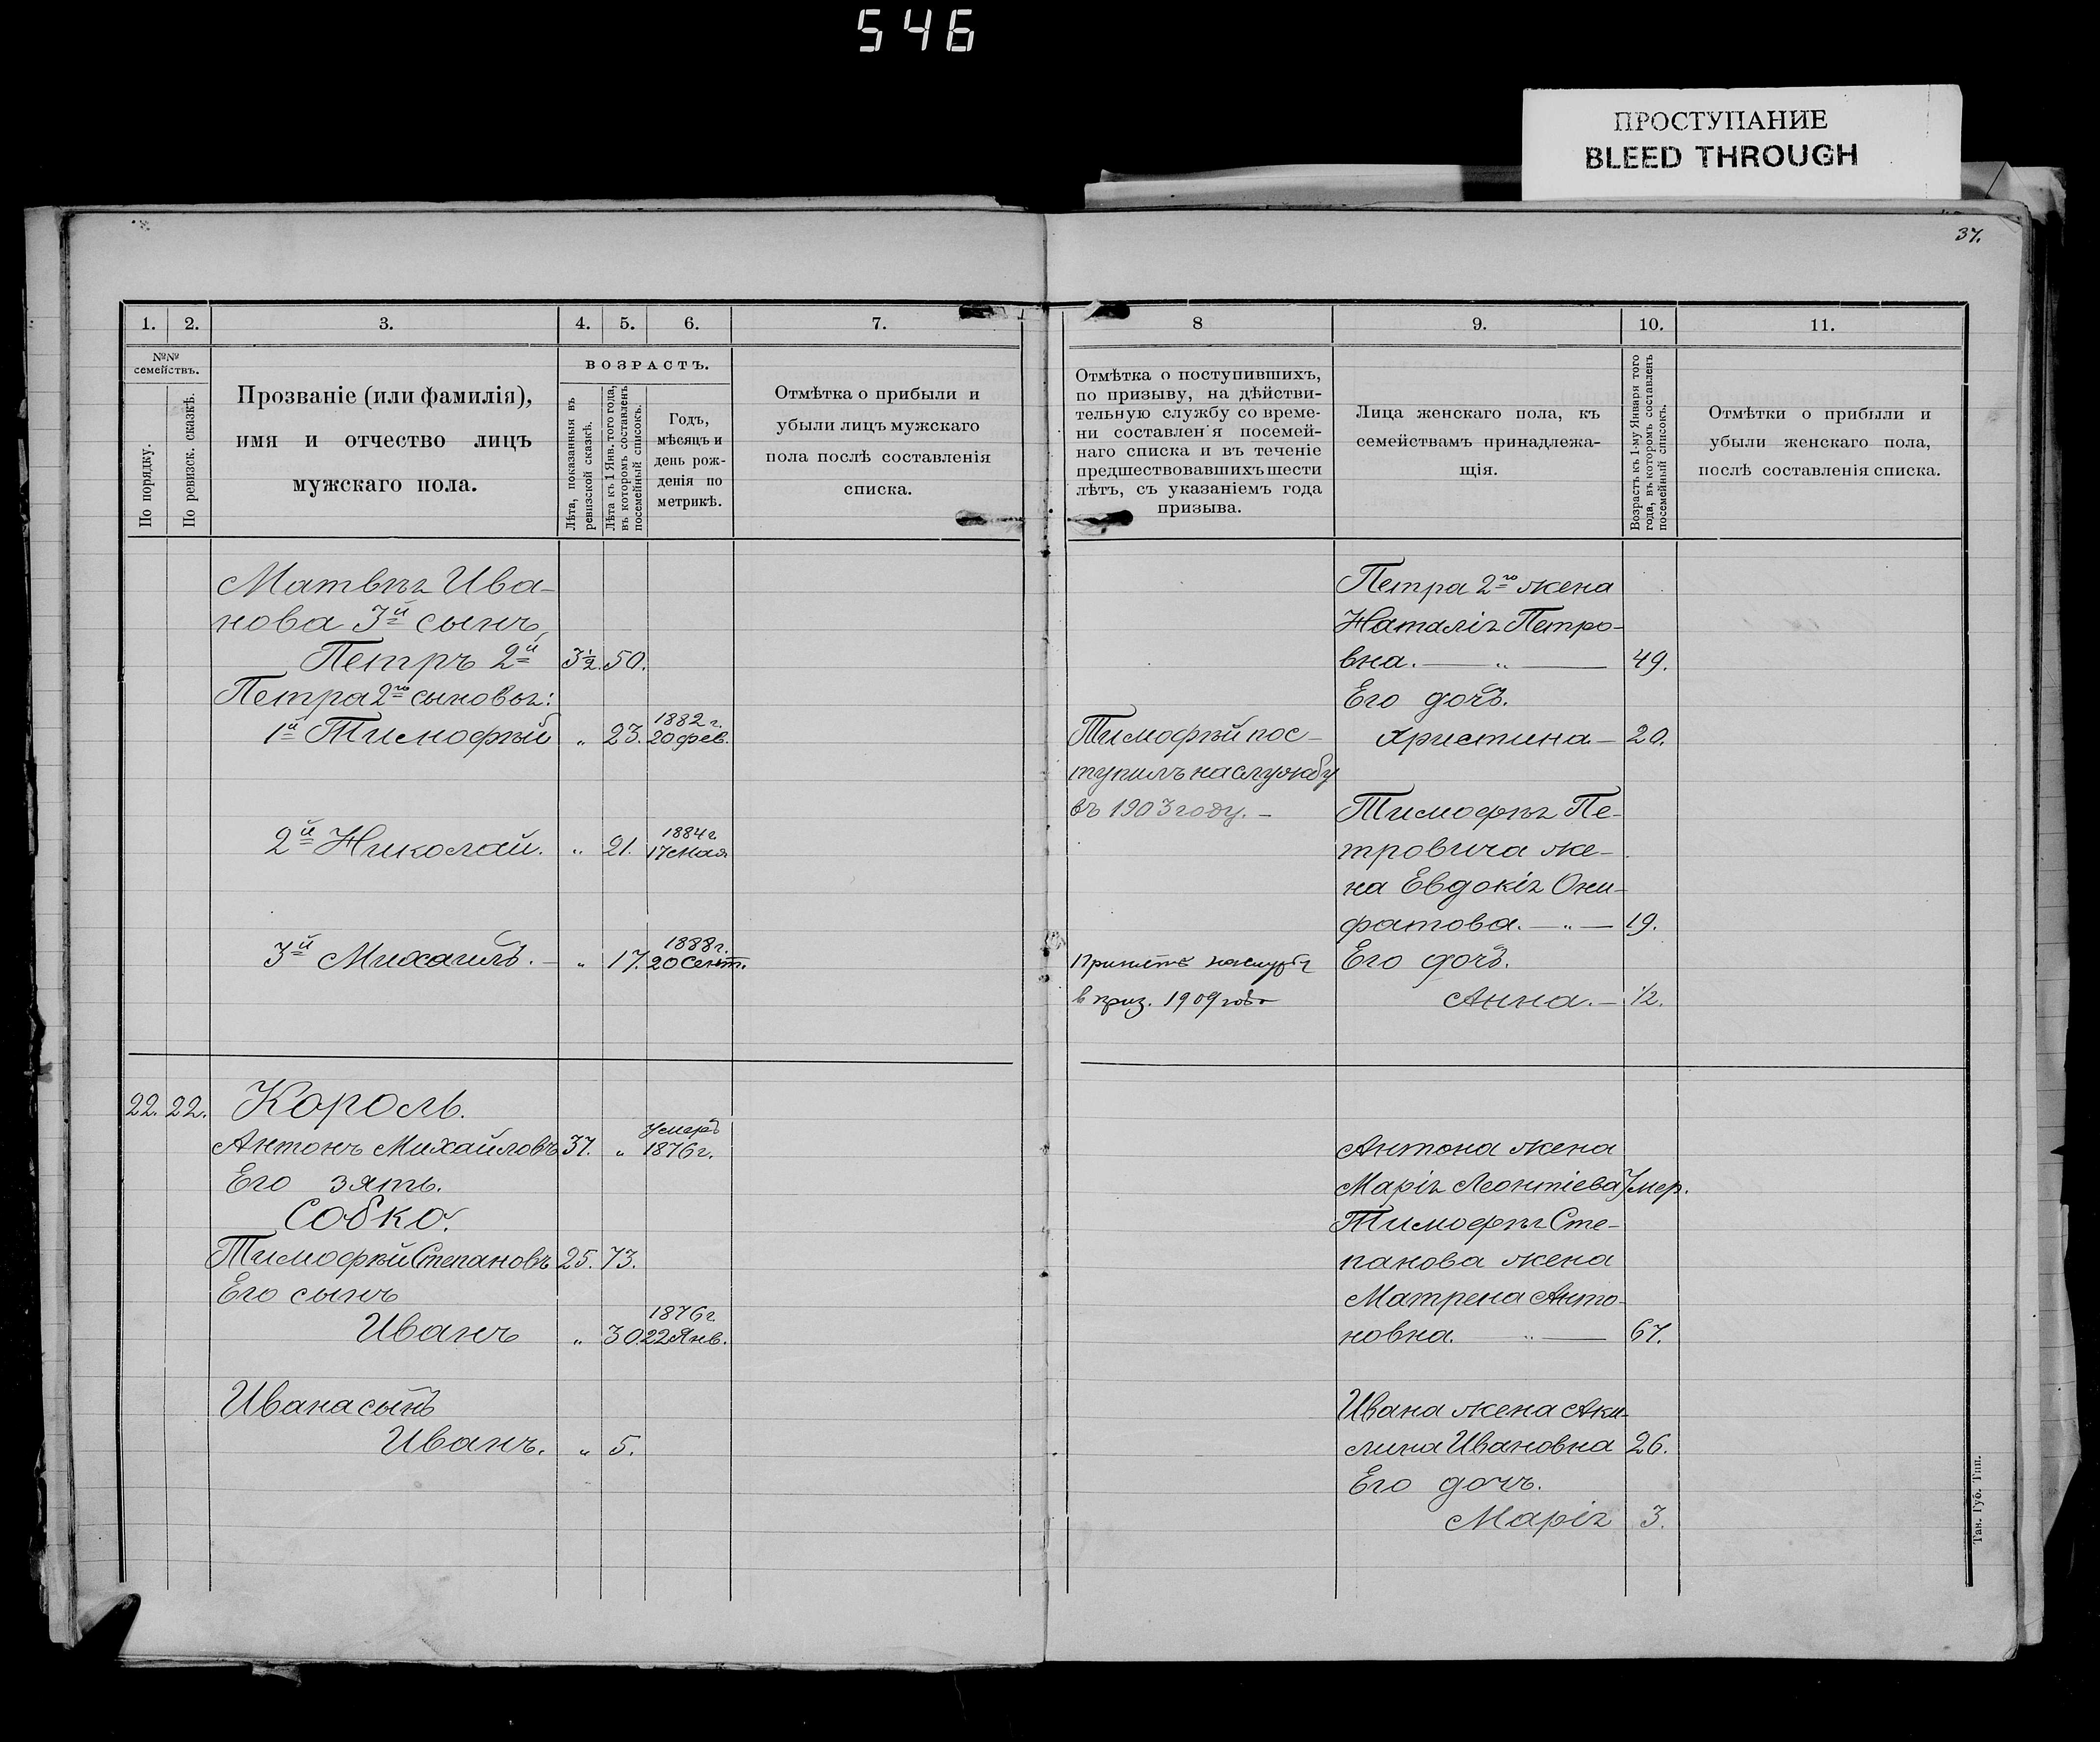 546
ПРОСТУПАНИЕ
BLEED THROUGH
37.
1. 2. 3. 4. 5. 6. 7.
№№ семействъ.
По порядку.
По ревизск. сказкѣ.
Прозваніе (или фамилія),
имя и отчество лицъ
мужскаго пола.
ВОЗРАСТЪ.
Лѣта, показанныя въ
ревизской сказкѣ.
Лѣта къ 1 Янв. того года,
въ которомъ составленъ
посемейный списокъ.
Годъ,
мѣсяцъ и
день рож-
денія по
метрикѣ.
Отмѣтка о прибыли и
убыли лицъ мужскаго
пола послѣ составленія
списка.
Матвѣя Ива-
нова 3й сынъ,
Петръ 2й 3½. 50.
Петра 2го сыновья:
1й Тимофѣй " 23. 1882 г. 20 фев.
2й Николай. " 21. 1884 г. 17 мая
3й Михаилъ. - " 17. 1888 г. 20 Сент.
22. 22. Король.
Антонъ Михайловъ 37. " Умеръ 1876 г.
Его зять.
Собко.
Тимофѣй Степановъ 25. 73.
Его сынъ
Иванъ " 30. 1876 г. 22 Янв.
Ивана сынъ
Иванъ. " 5.
8 9. 10. 11.
Отмѣтка о поступившихъ,
по призыву, на дѣйстви-
тельную службу со време-
ни составленія посемей-
наго списка и въ теченіе
предшествовавшихъ шести
лѣтъ, съ указаніемъ года
призыва.
Лица женскаго пола, къ
семействамъ принадлежа-
щія.
Возрастъ къ 1-му Января того
года, въ которомъ составленъ
посемейный списокъ.
Отмѣтки о прибыли и
убыли женскаго пола,
послѣ составленія списка.
Петра 2го жена
Наталія Петро-
вна. — " — 49.
Его дочь.
Тимофѣй пос- Христина — 20.
тупилъ на службу
въ 1903 году. - Тимофѣя Пе-
тровича же-
на Евдокія Они-
фатова. — " — 19.
Принятъ на службу Его дочь.
в приз. 1909 года Анна. — ½.
Антона жена
Марія Леонтіева Умер.
Тимофѣя Сте-
панова жена
Матрена Анто-
новна. " — 67.
Ивана жена Аки-
лина Ивановна 26.
Его дочь.
Марія 3.
Тан. Губ. Тип.